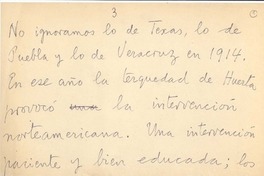 3
No ignoramos lo de Texas, lo de
Puebla y lo de Veracruz en 1914.
En ese año la terquedad de Huerta
provocó la intervención
norteamericana. Una intervención
paciente y bien educada; los